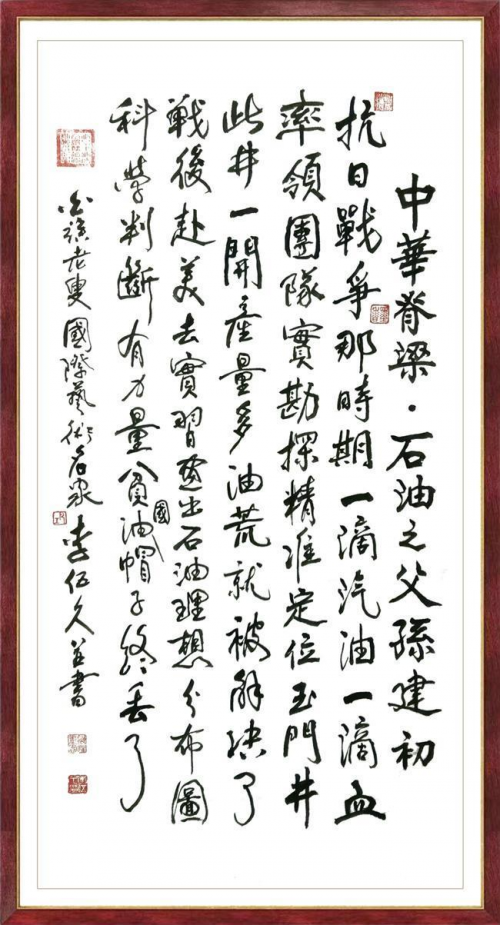 中華脊梁·石油之父孫建初
抗日戰爭那時期一滴汽油一滴血
率領團隊實勘探精准定位玉門井
此井一開産量多油荒就被解決了
戰後赴美去實習出石油理想分布圖
科學判斷有力量貧油國帽子終丢了
老叟國際藝術名家李久並書